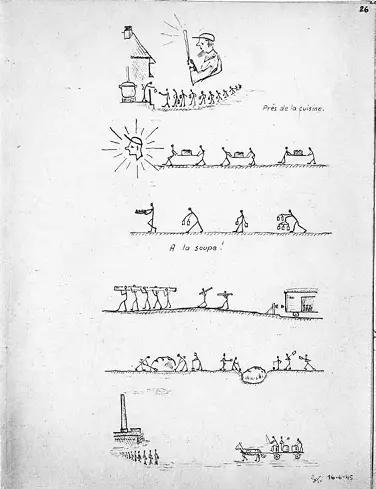 26
Près de la cuisine.
A la soupe!
16-4-45